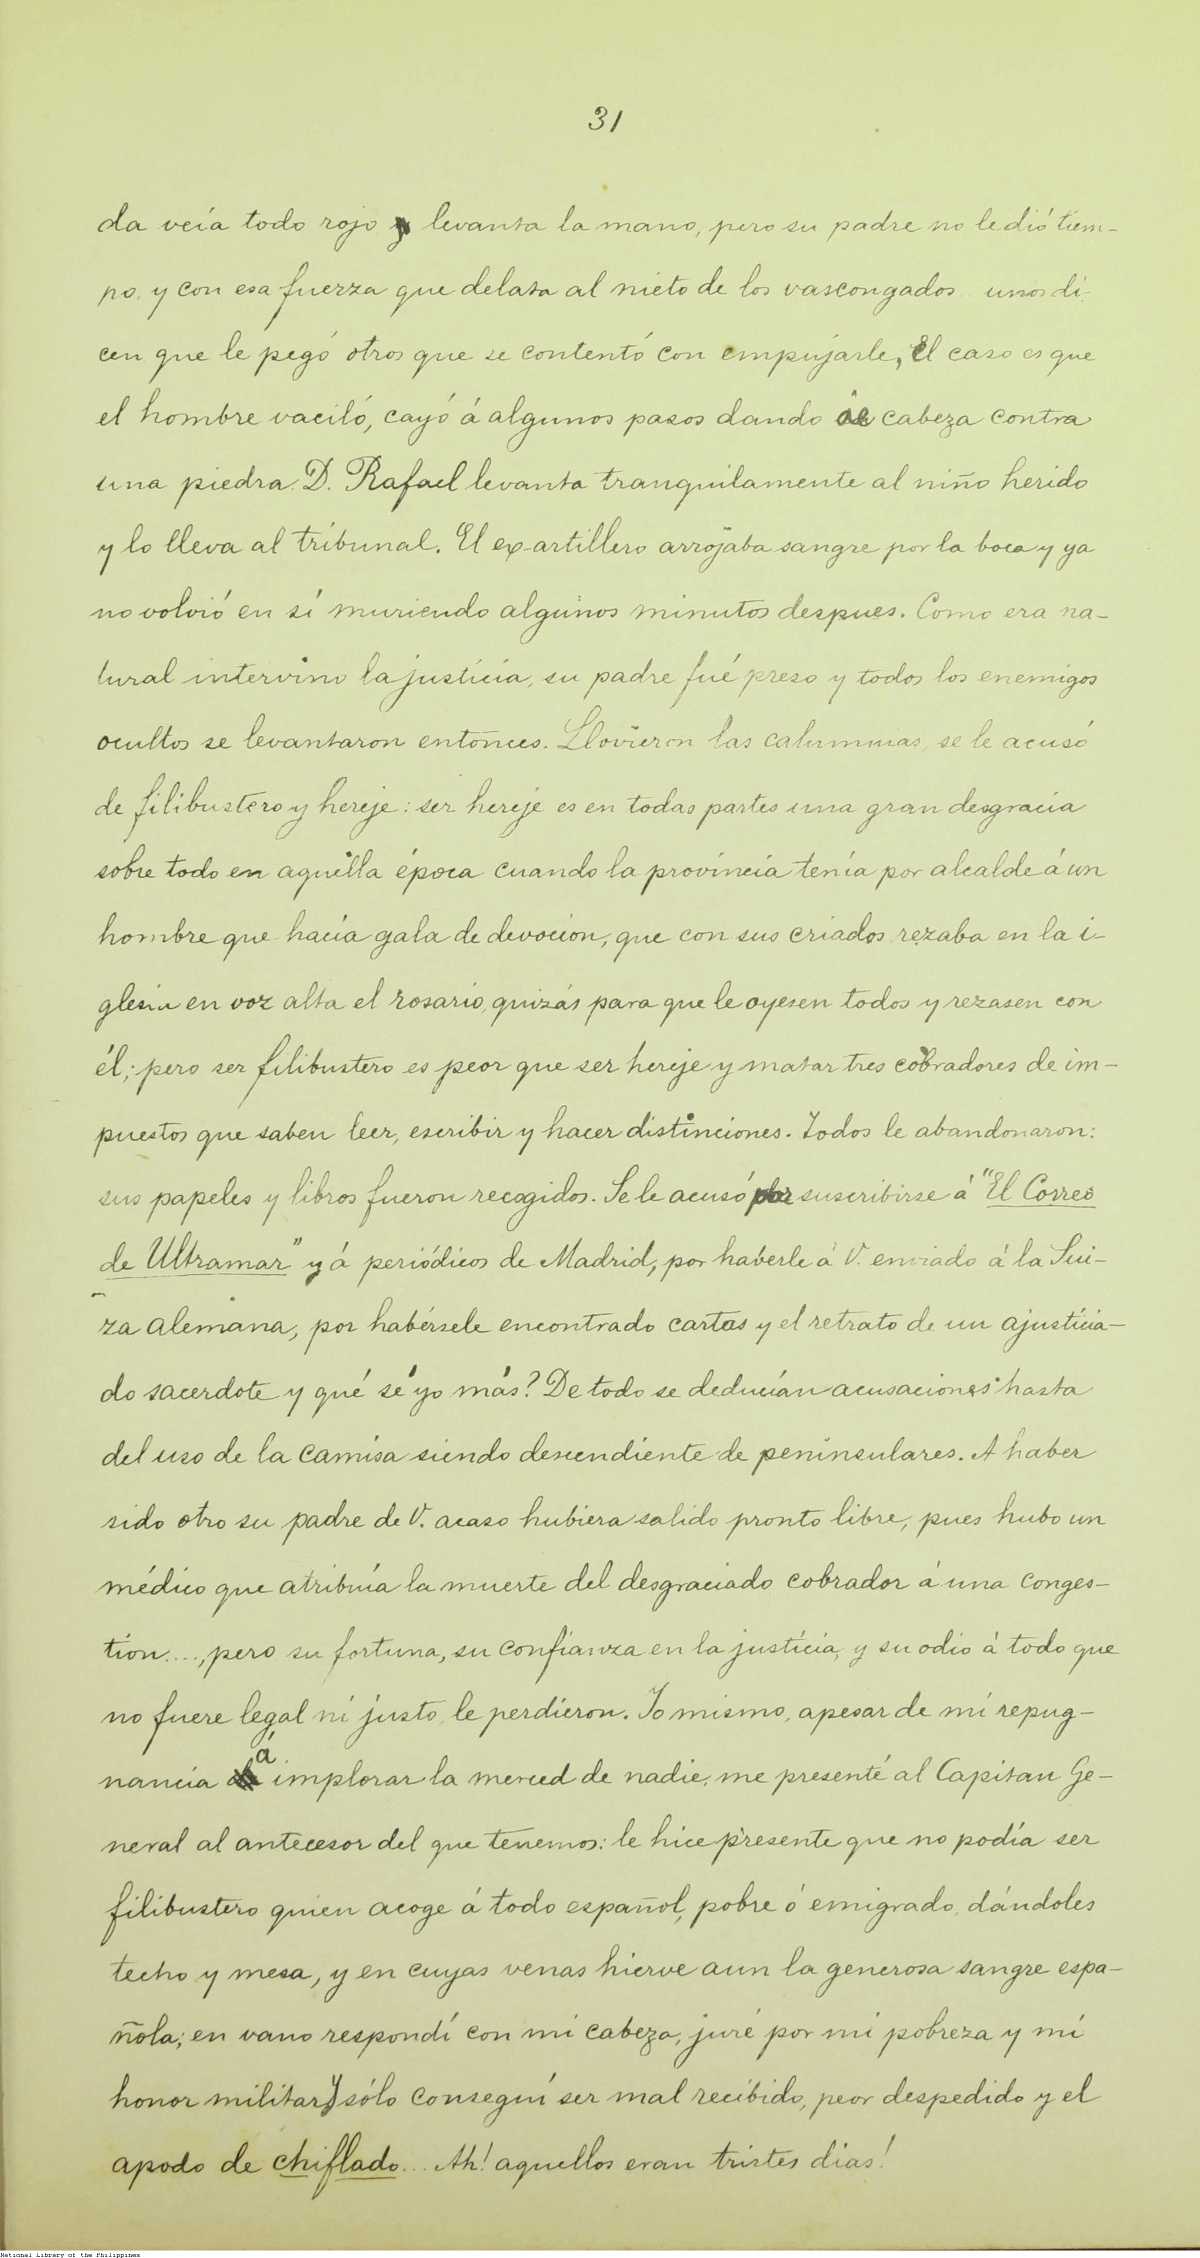 31
da veía todo rojo y levanta la mano, pero su padre no le dió tiem-
po. y con esa fuerza que delata al nieto de los vascongados unos di-
cen que le pegó otros que se contentó con empujarle, El caso es que
el hombre vaciló, cayó á algunos pasos dando de cabeza contra
una piedra. D. Rafael levanta tranquilamente al niño herido
y lo lleva al tribunal. El ex-artillero arrojaba sangre por la boca y ya
no volvió en sí muriendo algunos minutos despues. Como era na-
tural intervino la justicia, su padre fué preso y todos los enemigos
ocultos se levantaron entonces. Llovieron las calumnias, se le acusó
de filibustero y hereje: ser hereje es en todas partes una gran desgracia
sobre todo en aquella época cuando la provincia tenía por alcalde á un
hombre que hacía gala de devocion, que con sus criados rezaba en la i-
glesia en voz alta el rosario, quizás para que le oyesen todos y rezasen con
él; pero ser filibustero es peor que ser hereje y matar tres cobradores de im-
puestos que saben leer, escribir y hacer distinciones. Todos le abandonaron:
sus papeles y libros fueron recogidos. Se le acusó por suscribirse á "El Correo
de Ultramar" y á periódicos de Madrid, por haberle á V. enviado á la Sui-
za alemana, por habérsele encontrado cartas y el retrato de un ajusticia-
do sacerdote y qué sé yo más? De todo se deducían acusaciones hasta
del uso de la camisa siendo descendiente de peninsulares. A haber
sido otro su padre de V. acaso hubiera salido pronto libre, pues hubo un
médico que atribuía la muerte del desgraciado cobrador á una conges-
tion...., pero su fortuna, su confianza en la justicia, y su odio á todo que
no fuere legal ni justo, le perdieron. Yo mismo, apesar de mi repug-
nancia á implorar la merced de nadie, me presenté al Capitan Ge-
neral al antecesor del que tenemos: le hice presente que no podía ser
filibustero quien acoge á todo español, pobre ó emigrado, dándoles
techo y mesa, y en cuyas venas hierve aun la generosa sangre espa-
ñola; en vano respondí con mi cabeza, juré por mi pobreza y mi
honor militar y sólo conseguí ser mal recibido, peor despedido y el
apodo de chiflado... Ah! aquellos eran tristes dias!
National Library of the Philippines